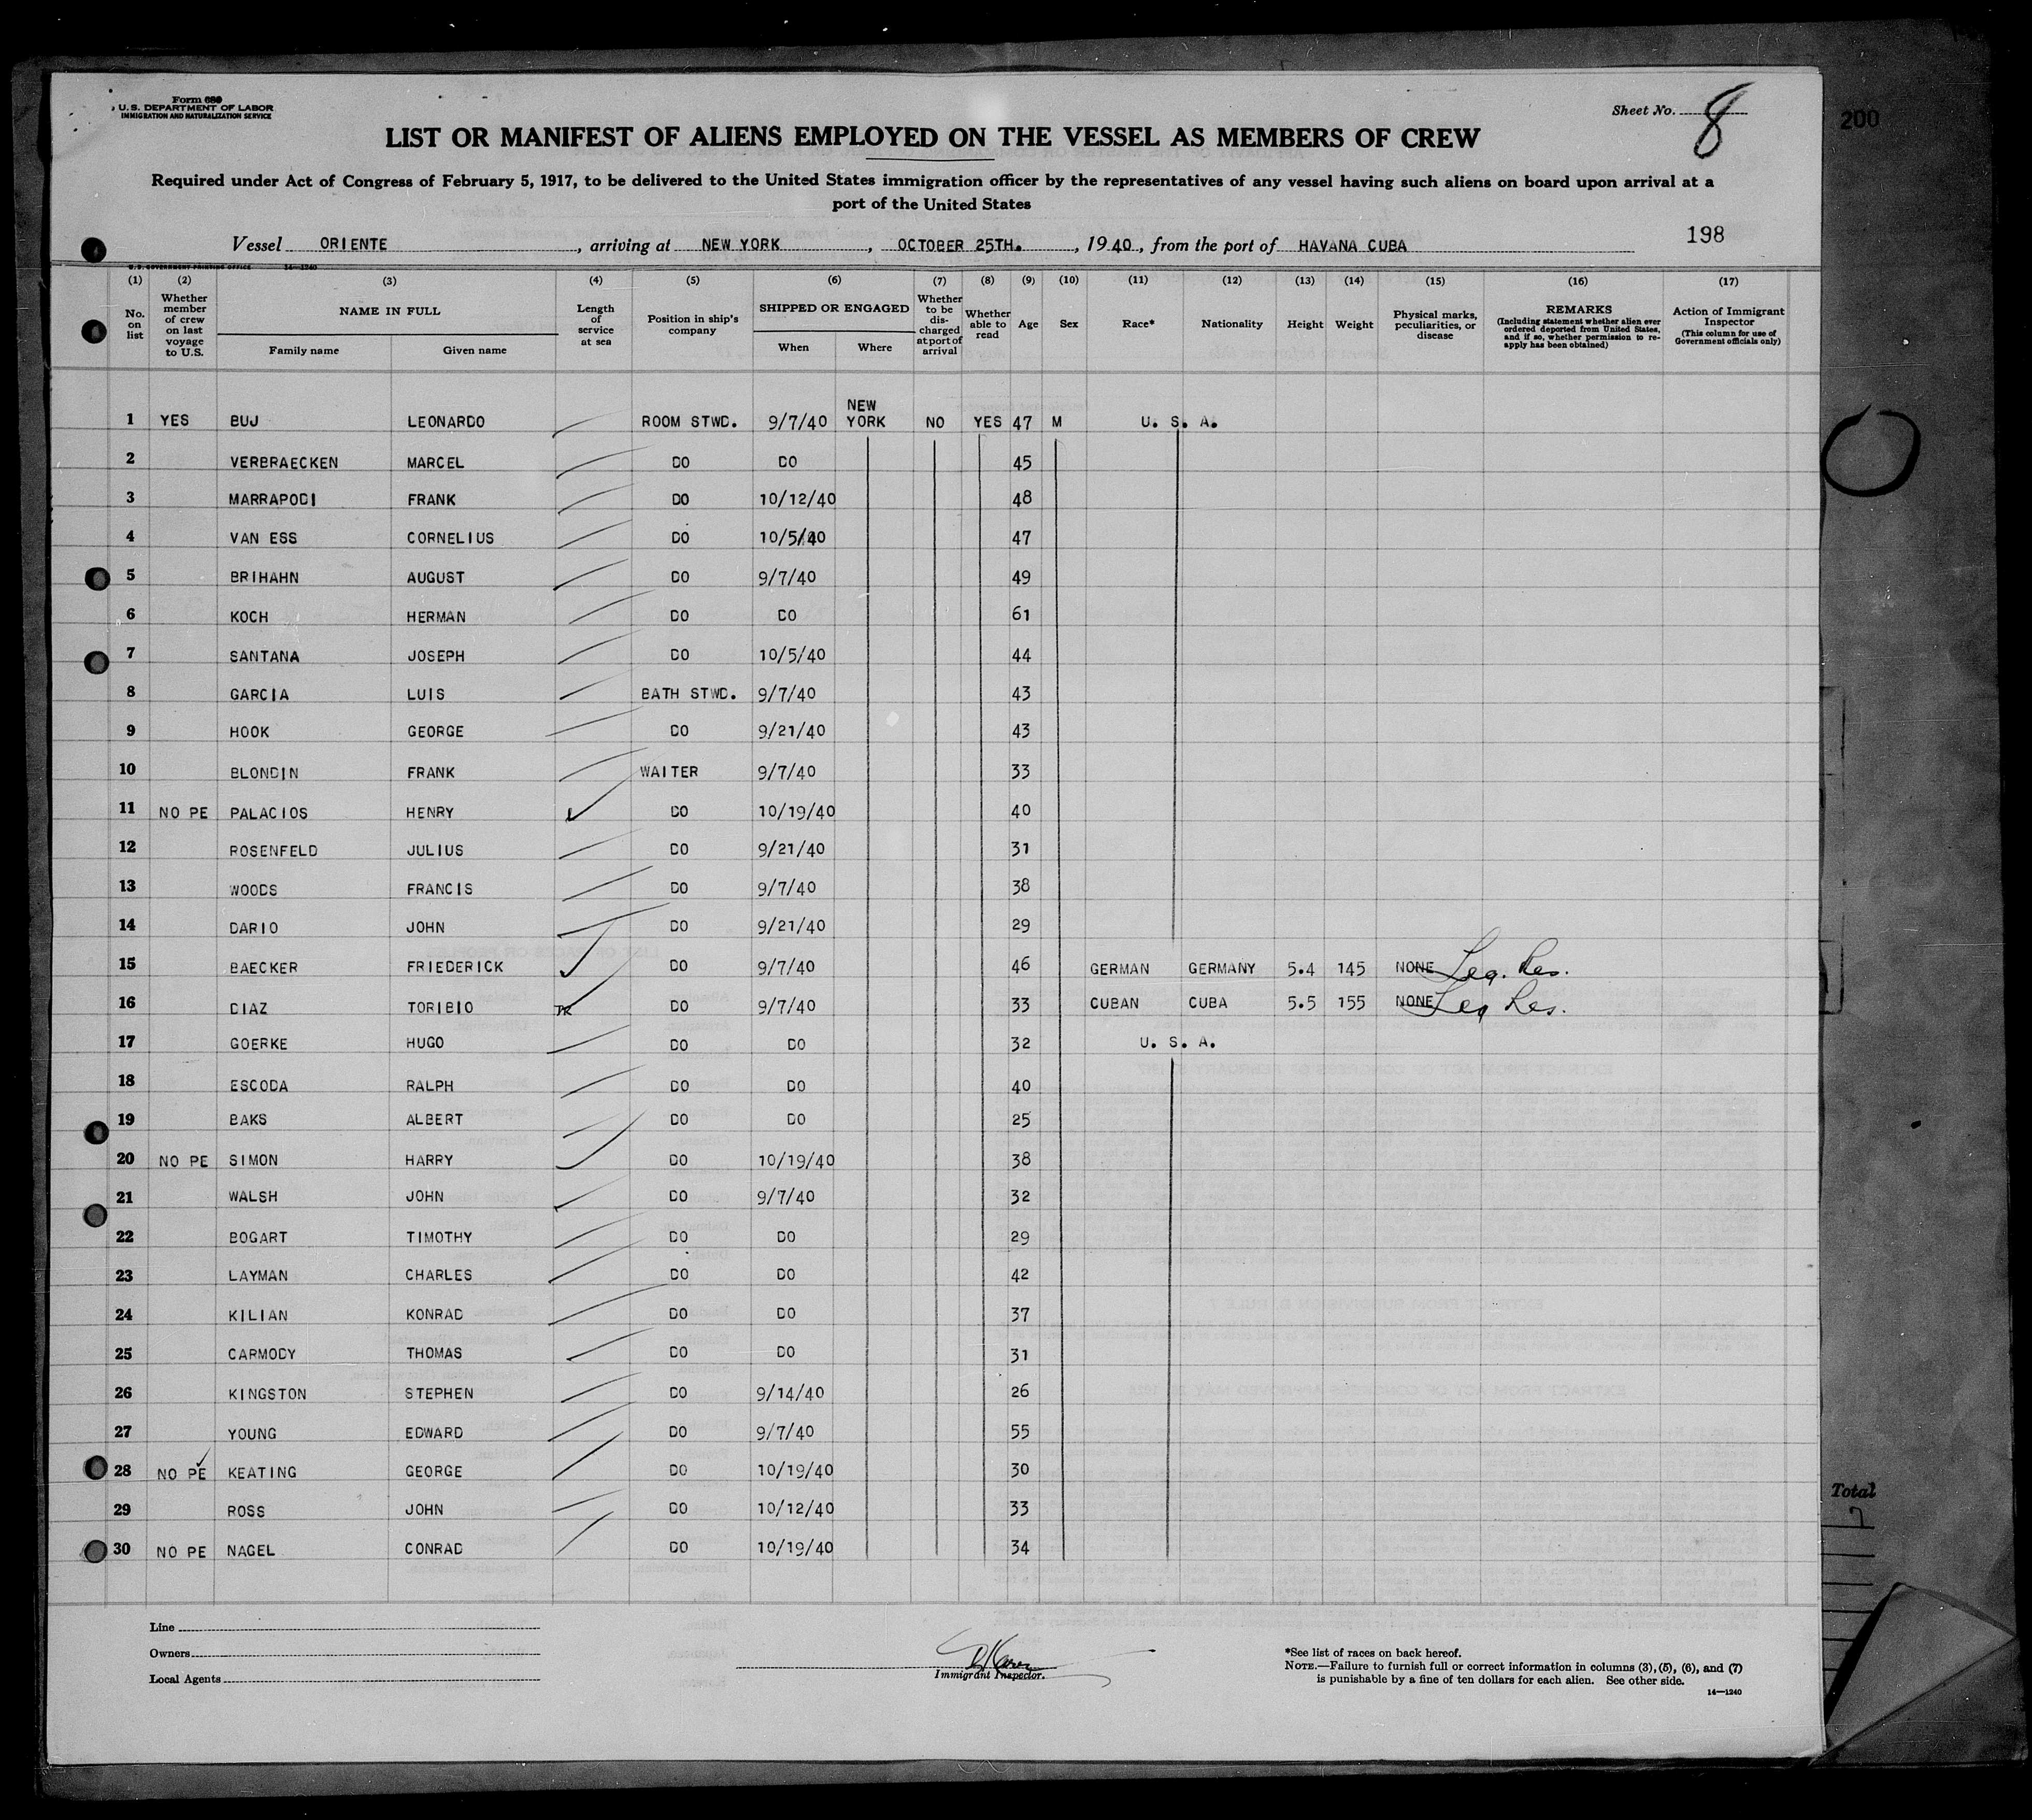 Form 680
U. S. DEPARTMENT OF LABOR
IMMIGRATION AND NATURALIZATION SERVICE
Sheet No. 8
200
LIST OR MANIFEST OF ALIENS EMPLOYED ON THE VESSEL AS MEMBERS OF CREW
Required under Act of Congress of February 5, 1917, to be delivered to the United States immigration officer by the representatives of any vessel having such aliens on board upon arrival at a
port of the United States
Vessel ORIENTE, arriving at NEW YORK, OCTOBER 25TH., 1940, from the port of HAVANA CUBA
198
U. S. GOVERNMENT PRINTING OFFICE 14—1240
(1) (2) (3) (4) (5) (6) (7) (8) (9) (10) (11) (12) (13) (14) (15) (16) (17)
No. on list
Whether member of crew on last voyage to U.S.
NAME IN FULL
Family name
Given name
Length of service at sea
Position in ship's company
SHIPPED OR ENGAGED
When
Where
Whether to be discharged at port of arrival
Whether able to read
Age
Sex
Race*
Nationality
Height
Weight
Physical marks, peculiarities, or disease
REMARKS
(Including statement whether alien ever ordered deported from United States, and if so, whether permission to reapply has been obtained)
Action of Immigrant Inspector
(This column for use of Government officials only)
1 YES BUJ LEONARDO ROOM STWD. 9/7/40 NEW YORK NO YES 47 M U. S. A.
2 VERBRAECKEN MARCEL DO DO 45
3 MARRAPODI FRANK DO 10/12/40 48
4 VAN ESS CORNELIUS DO 10/5/40 47
5 BRIHAHN AUGUST DO 9/7/40 49
6 KOCH HERMAN DO DO 61
7 SANTANA JOSEPH DO 10/5/40 44
8 GARCIA LUIS BATH STWD. 9/7/40 43
9 HOOK GEORGE DO 9/21/40 43
10 BLONDIN FRANK WAITER 9/7/40 33
11 NO PE PALACIOS HENRY DO 10/19/40 40
12 ROSENFELD JULIUS DO 9/21/40 31
13 WOODS FRANCIS DO 9/7/40 38
14 DARIO JOHN DO 9/21/40 29
15 BAECKER FRIEDERICK DO 9/7/40 46 GERMAN GERMANY 5.4 145 NONE Leg. Res.
16 DIAZ TORIBIO DO 9/7/40 33 CUBAN CUBA 5.5 155 NONE Leg Res.
17 GOERKE HUGO DO DO 32 U. S. A.
18 ESCODA RALPH DO DO 40
19 BAKS ALBERT DO DO 25
20 NO PE SIMON HARRY DO 10/19/40 38
21 WALSH JOHN DO 9/7/40 32
22 BOGART TIMOTHY DO DO 29
23 LAYMAN CHARLES DO DO 42
24 KILIAN KONRAD DO DO 37
25 CARMODY THOMAS DO DO 31
26 KINGSTON STEPHEN DO 9/14/40 26
27 YOUNG EDWARD DO 9/7/40 55
28 NO PE KEATING GEORGE DO 10/19/40 30
29 ROSS JOHN DO 10/12/40 33
30 NO PE NAGEL CONRAD DO 10/19/40 34
Total
Line
Owners
Local Agents
Immigrant Inspector.
*See list of races on back hereof.
NOTE.—Failure to furnish full or correct information in columns (3), (5), (6), and (7)
is punishable by a fine of ten dollars for each alien. See other side.
14—1240